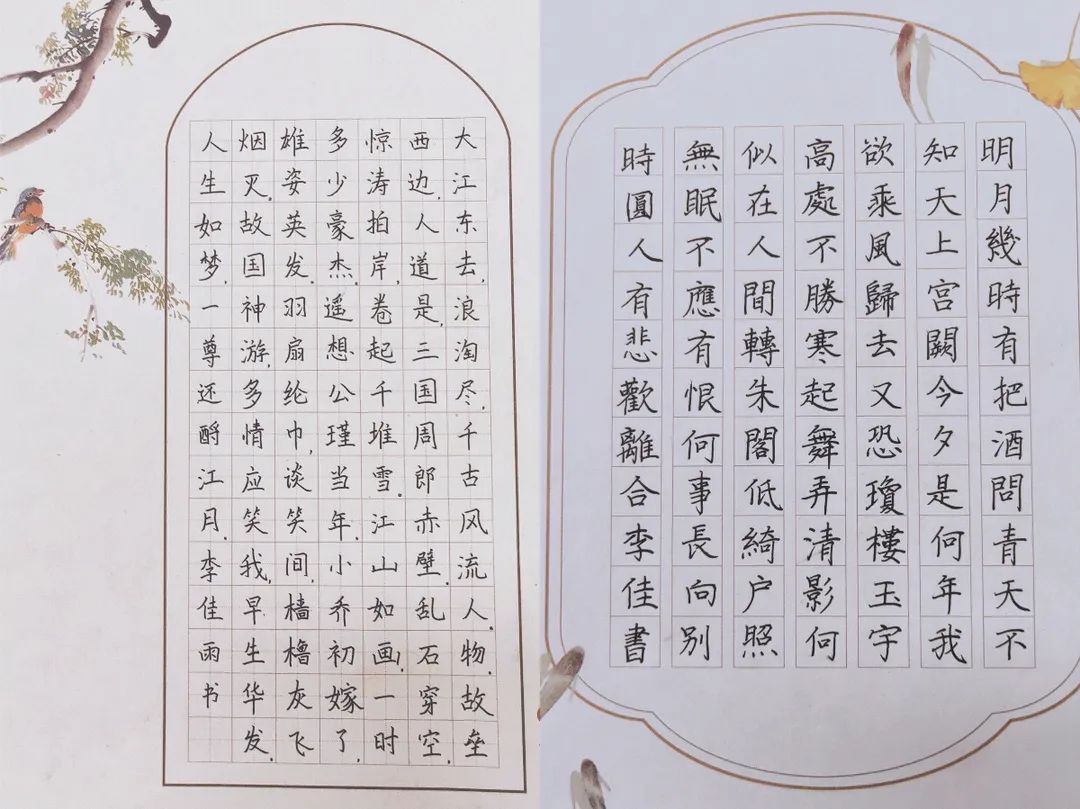 大江东去,浪淘尽,千古风流人物,故垒
西边,人道是,三国周郎赤壁,乱石穿空,
惊涛拍岸,卷起千堆雪。江山如画!一时
多少豪杰。遥想公瑾当年,小乔初嫁了,
雄姿英发,羽扇纶巾,谈笑间,樯橹灰飞
烟灭。故国神游,多情应笑我,早生华发,
人生如梦,一尊还酹江月。李佳雨书
明月幾時有把酒問青天不
知天上宮闕今夕是何年我
欲乘風歸去又恐瓊樓玉宇
高處不勝寒起舞弄清影何
似在人間轉朱閣低綺户照
無眠不應有恨何事長向別
時圓人有悲歡離合李佳書